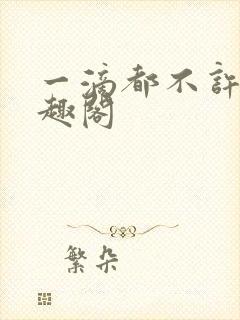 一滴都不許
趣閣
繁朵